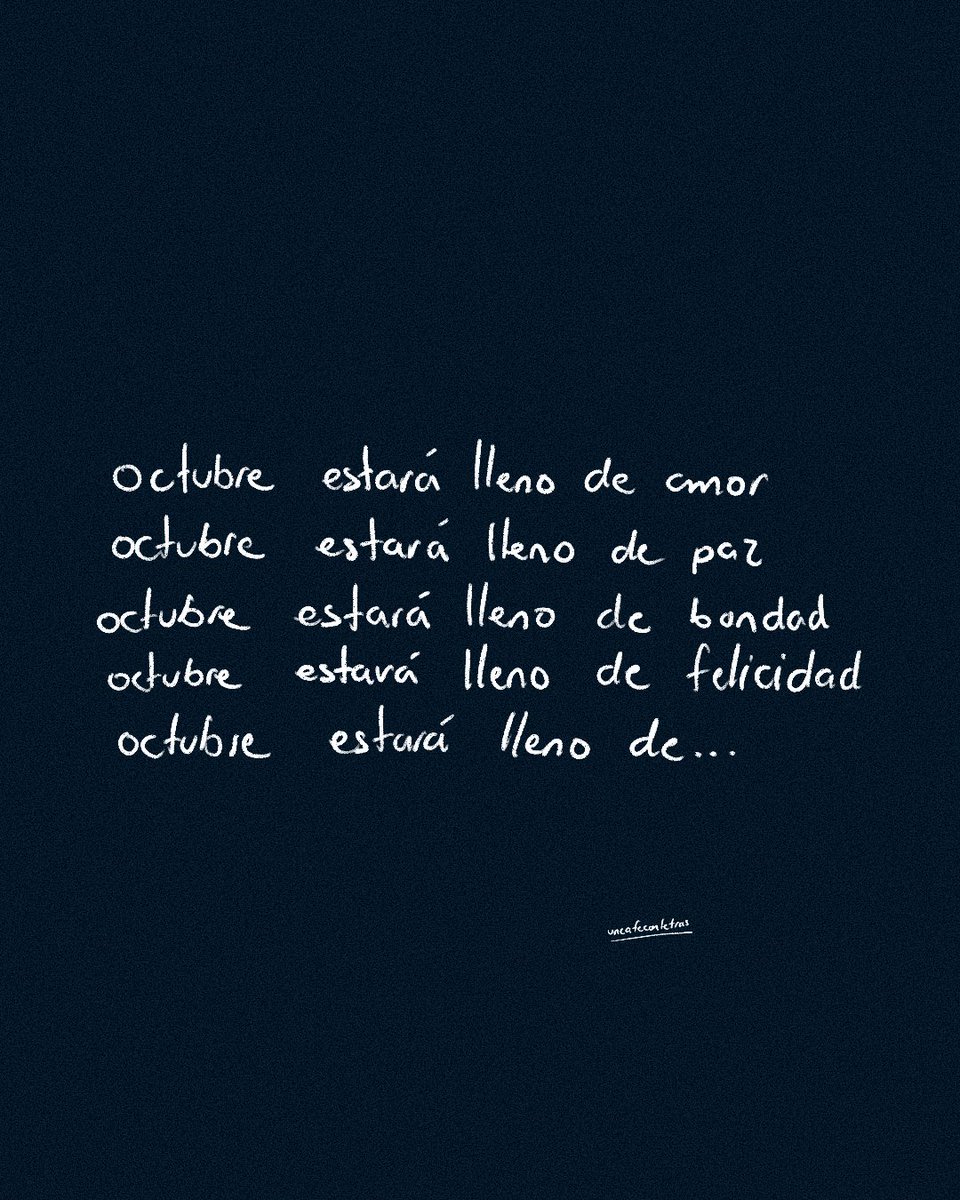 octubre estará lleno de amor
octubre estará lleno de paz
octubre estará lleno de bondad
octubre estará lleno de felicidad
octubre estará lleno de...
uncafeconletras